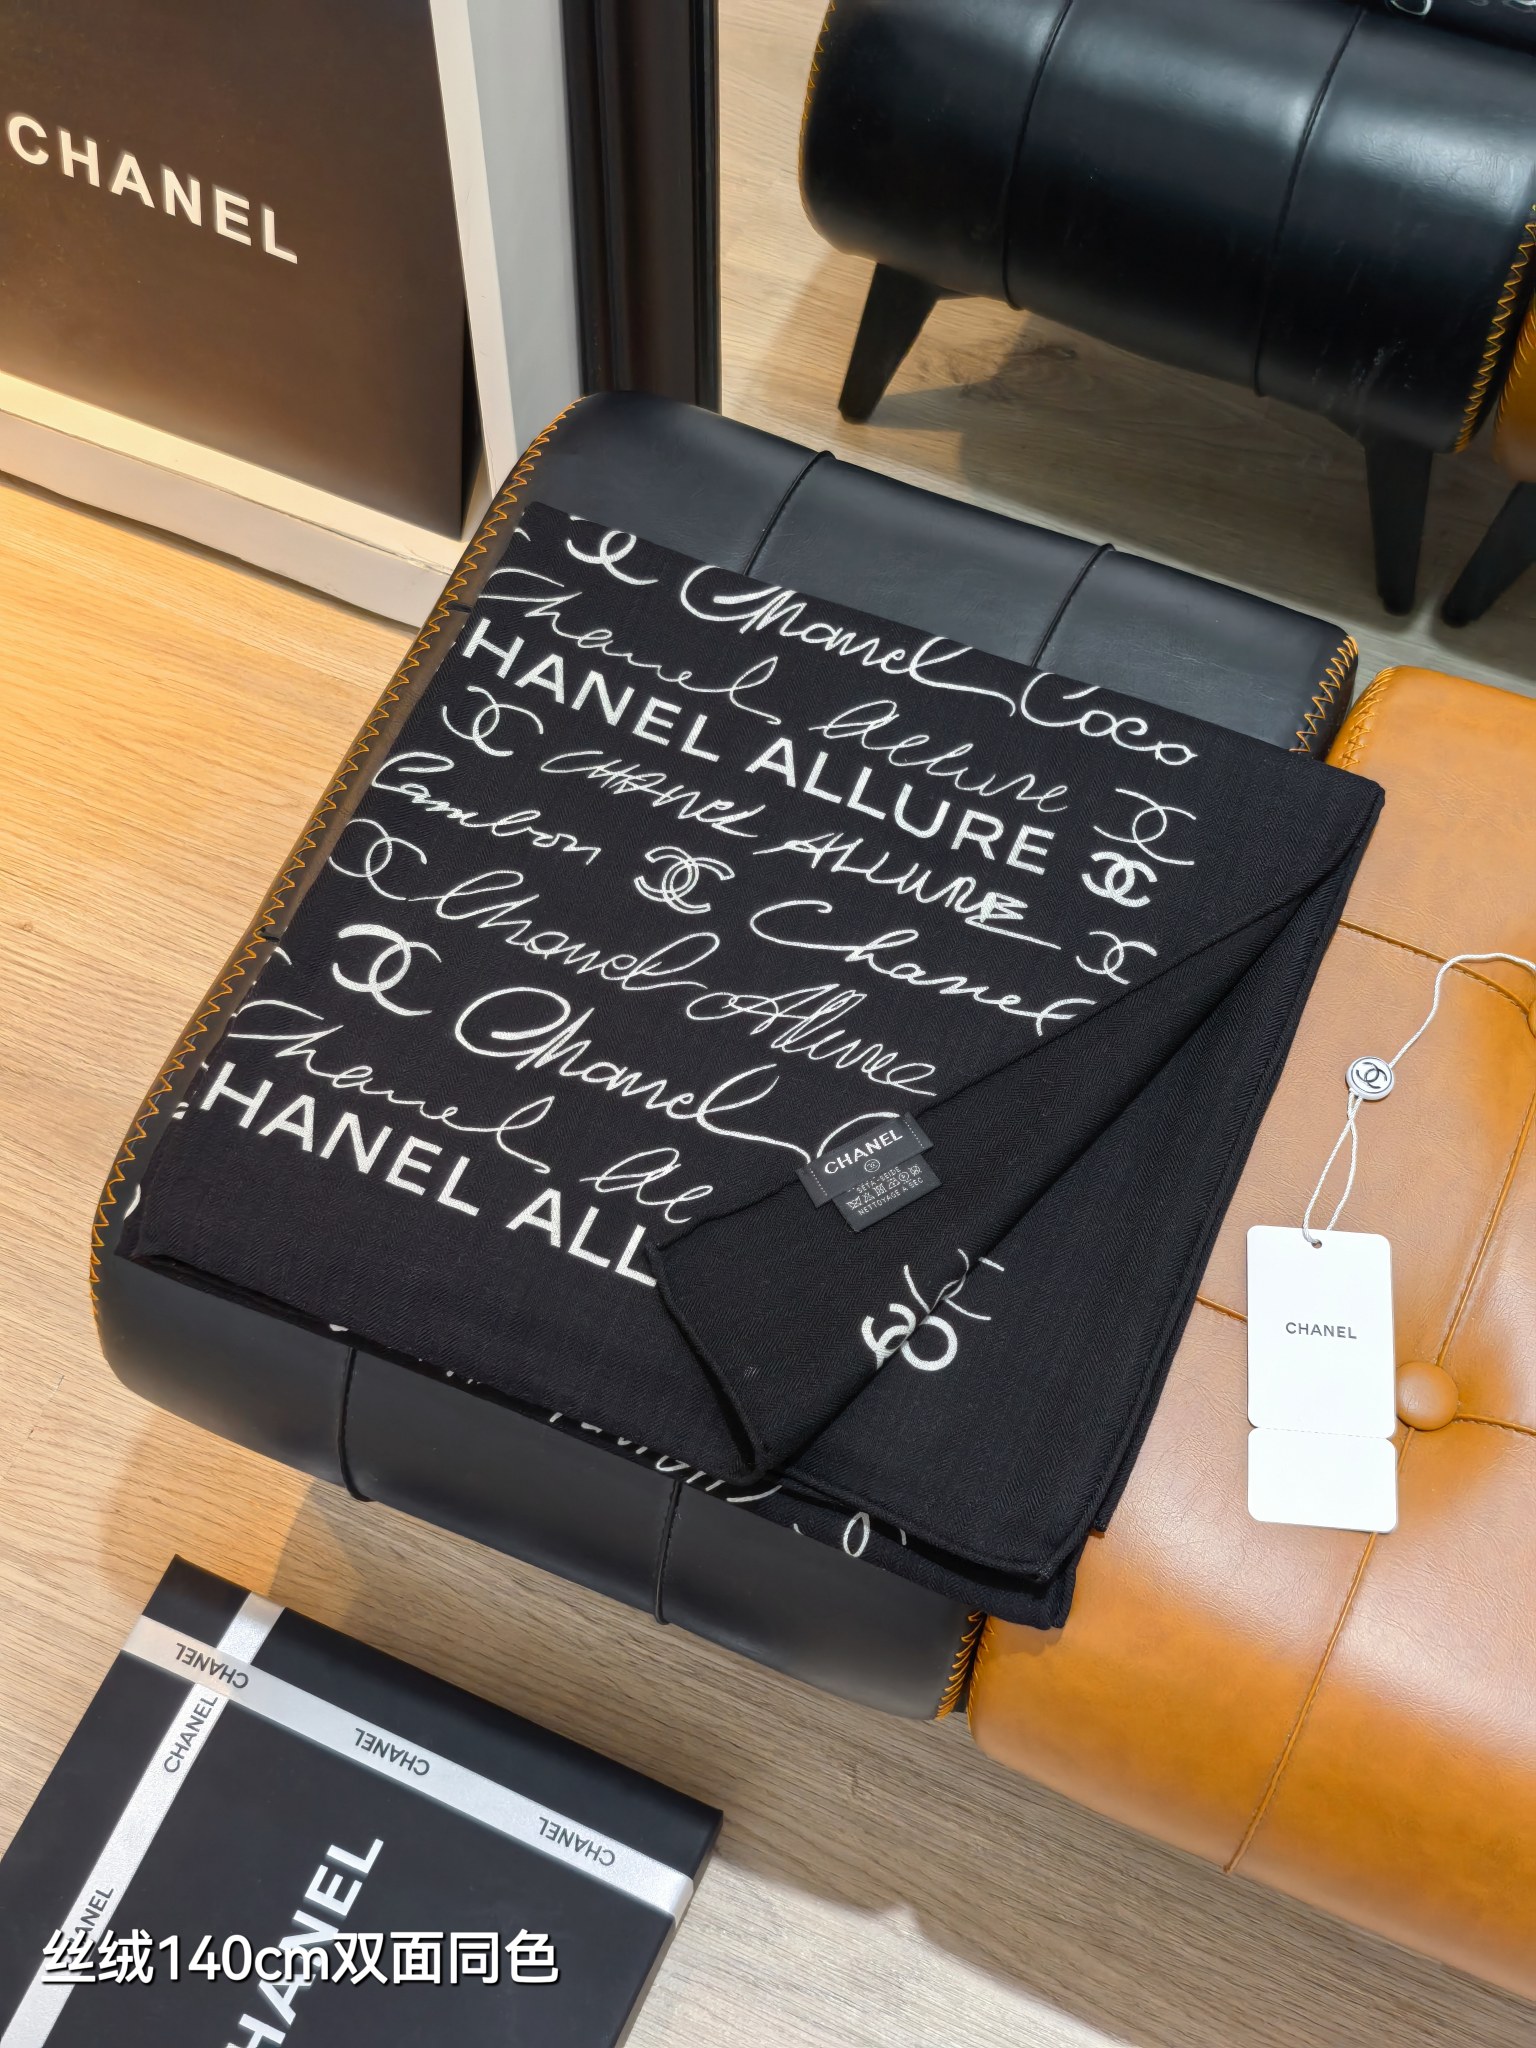 CHANEL
Chanel Coco
Chanel allure
HANEL ALLURE
CHANEL ALLURE
Cambon
Chanel
Chanel Allure
Chanel
Chanel
CHANEL ALL
CHANEL
NETTOYAGE A SEC
CHANEL
CHANEL
CHANEL
CHANEL
CHANEL
丝绒140cm双面同色